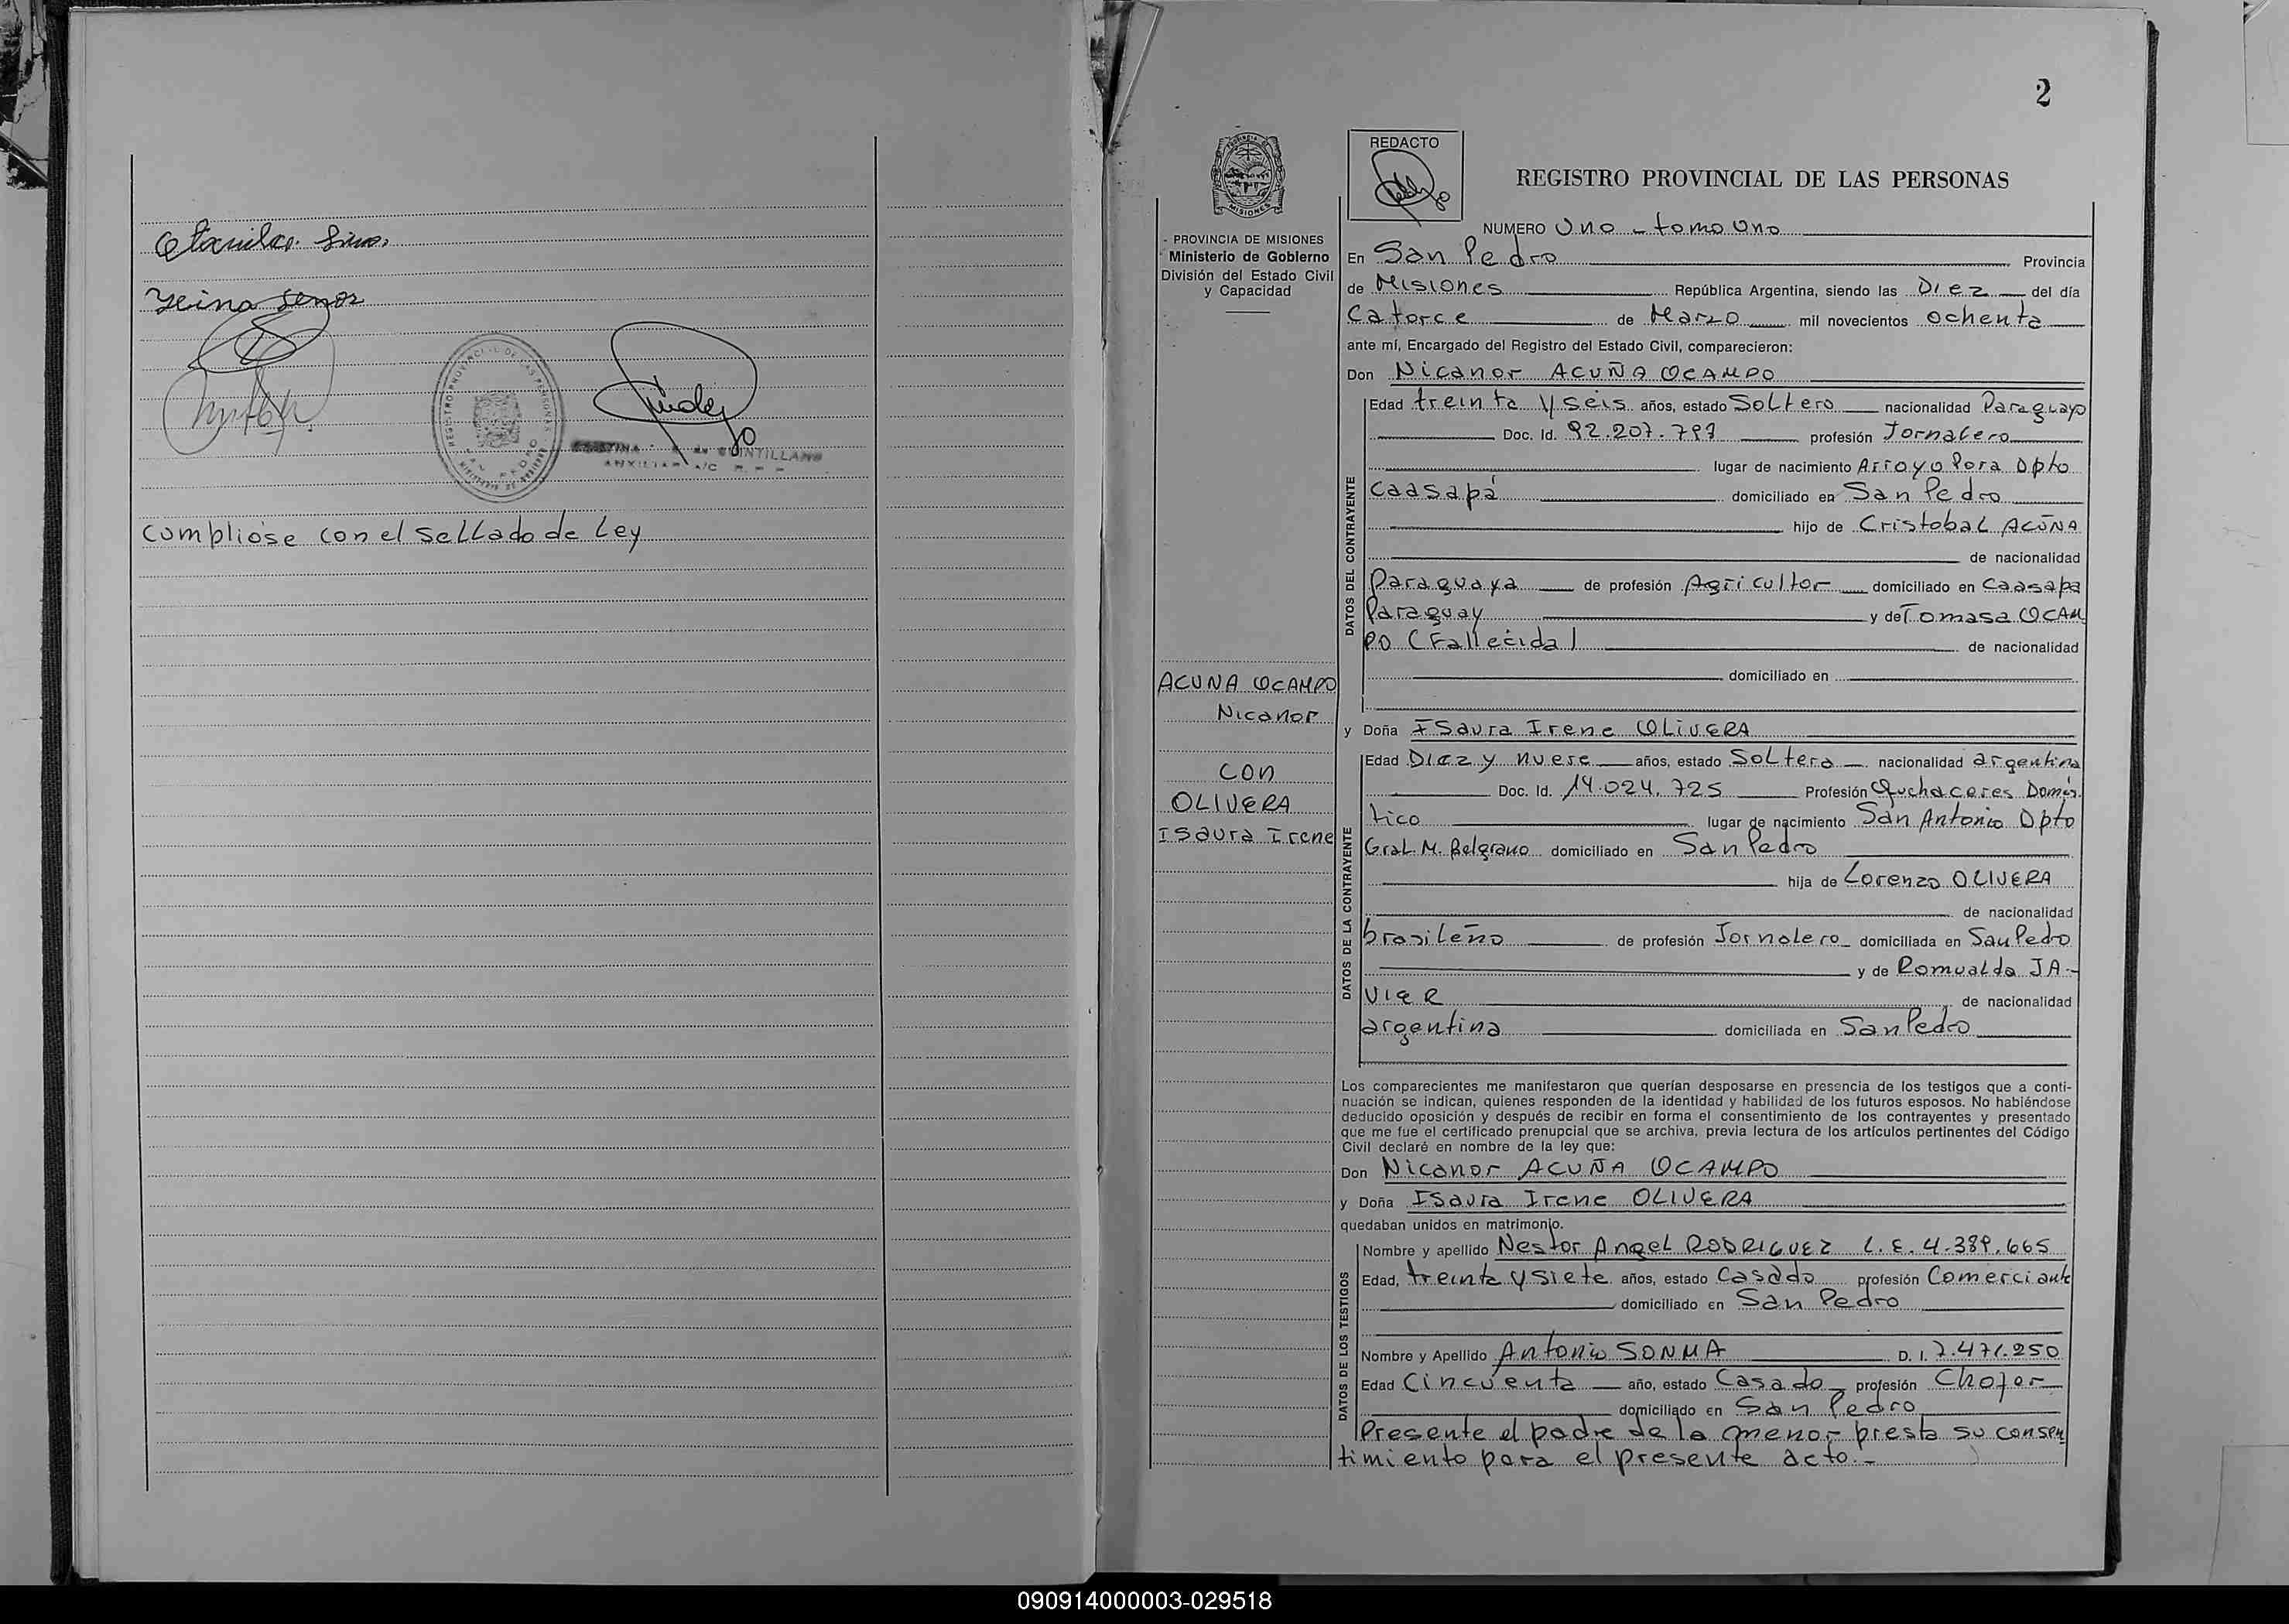 cumplióse con el sellado de Ley
REGISTRO PROVINCIAL DE LAS PERSONAS
SAN PEDRO
2
MISIONES
REDACTO
REGISTRO PROVINCIAL DE LAS PERSONAS
- PROVINCIA DE MISIONES
Ministerio de Gobierno
División del Estado Civil
y Capacidad
ACUÑA OCAMPO
Nicanor
con
OLIVERA
Isaura Irene
NUMERO Uno - tomo Uno
En San Pedro Provincia
de Misiones República Argentina, siendo las Diez del día
Catorce de Marzo mil novecientos ochenta
ante mí, Encargado del Registro del Estado Civil, comparecieron:
Don Nicanor ACUÑA OCAMPO
DATOS DEL CONTRAYENTE
Edad treinta y seis años, estado Soltero nacionalidad Paraguayo
Doc. Id. 92.207.797 profesión Jornalero
lugar de nacimiento Arroyo Pora Dpto
Caasapá domiciliado en San Pedro
hijo de Cristobal ACUÑA
de nacionalidad
Paraguaya de profesión Agricultor domiciliado en Caasapa
Paraguay y de Tomasa OCAM
PO (Fallecida) de nacionalidad
domiciliado en
y Doña Isaura Irene OLIVERA
DATOS DE LA CONTRAYENTE
Edad Diez y nueve años, estado Soltera nacionalidad argentina
Doc. Id. 14.024.725 Profesión Quehaceres Domés
tico lugar de nacimiento San Antonio Dpto
Gral. M. Belgrano domiciliado en San Pedro
hija de Lorenzo OLIVERA
de nacionalidad
brasileño de profesión Jornalero domiciliada en San Pedro
y de Romualda JA-
VIER de nacionalidad
argentina domiciliada en San Pedro
Los comparecientes me manifestaron que querían desposarse en presencia de los testigos que a conti-
nuación se indican, quienes responden de la identidad y habilidad de los futuros esposos. No habiéndose
deducido oposición y después de recibir en forma el consentimiento de los contrayentes y presentado
que me fue el certificado prenupcial que se archiva, previa lectura de los artículos pertinentes del Código
Civil declaré en nombre de la ley que:
Don Nicanor ACUÑA OCAMPO
y Doña Isaura Irene OLIVERA
quedaban unidos en matrimonio.
DATOS DE LOS TESTIGOS
Nombre y apellido Nestor Angel RODRIGUEZ L.E. 4.389.665
Edad, treinta y siete años, estado Casado profesión Comerciante
domiciliado en San Pedro
Nombre y Apellido Antonio SONMA D. I. 7.471.250
Edad Cincuenta año, estado Casado profesión Chofer
domiciliado en San Pedro
Presente el padre de la menor presta su consen
timiento para el presente acto.-
090914000003-029518